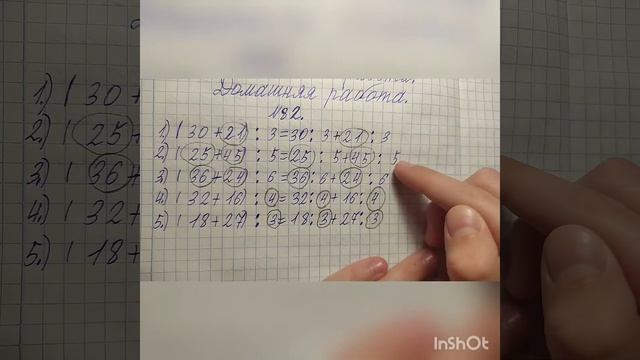 Домашняя работа.
№82.
1) (30+21) : 3=30 : 3+21 : 3
2) (25+45) : 5=25 : 5+45 : 5
3) (36+24) : 6=36 : 6+24 : 6
4.) (32+16) : 4=32 : 4+16 : 4
5.) (18+27) : 3=18 : 3+27 : 3
1.) (30+
2) (25
3) (36
4.) (32+
5.) (18+
InShOt